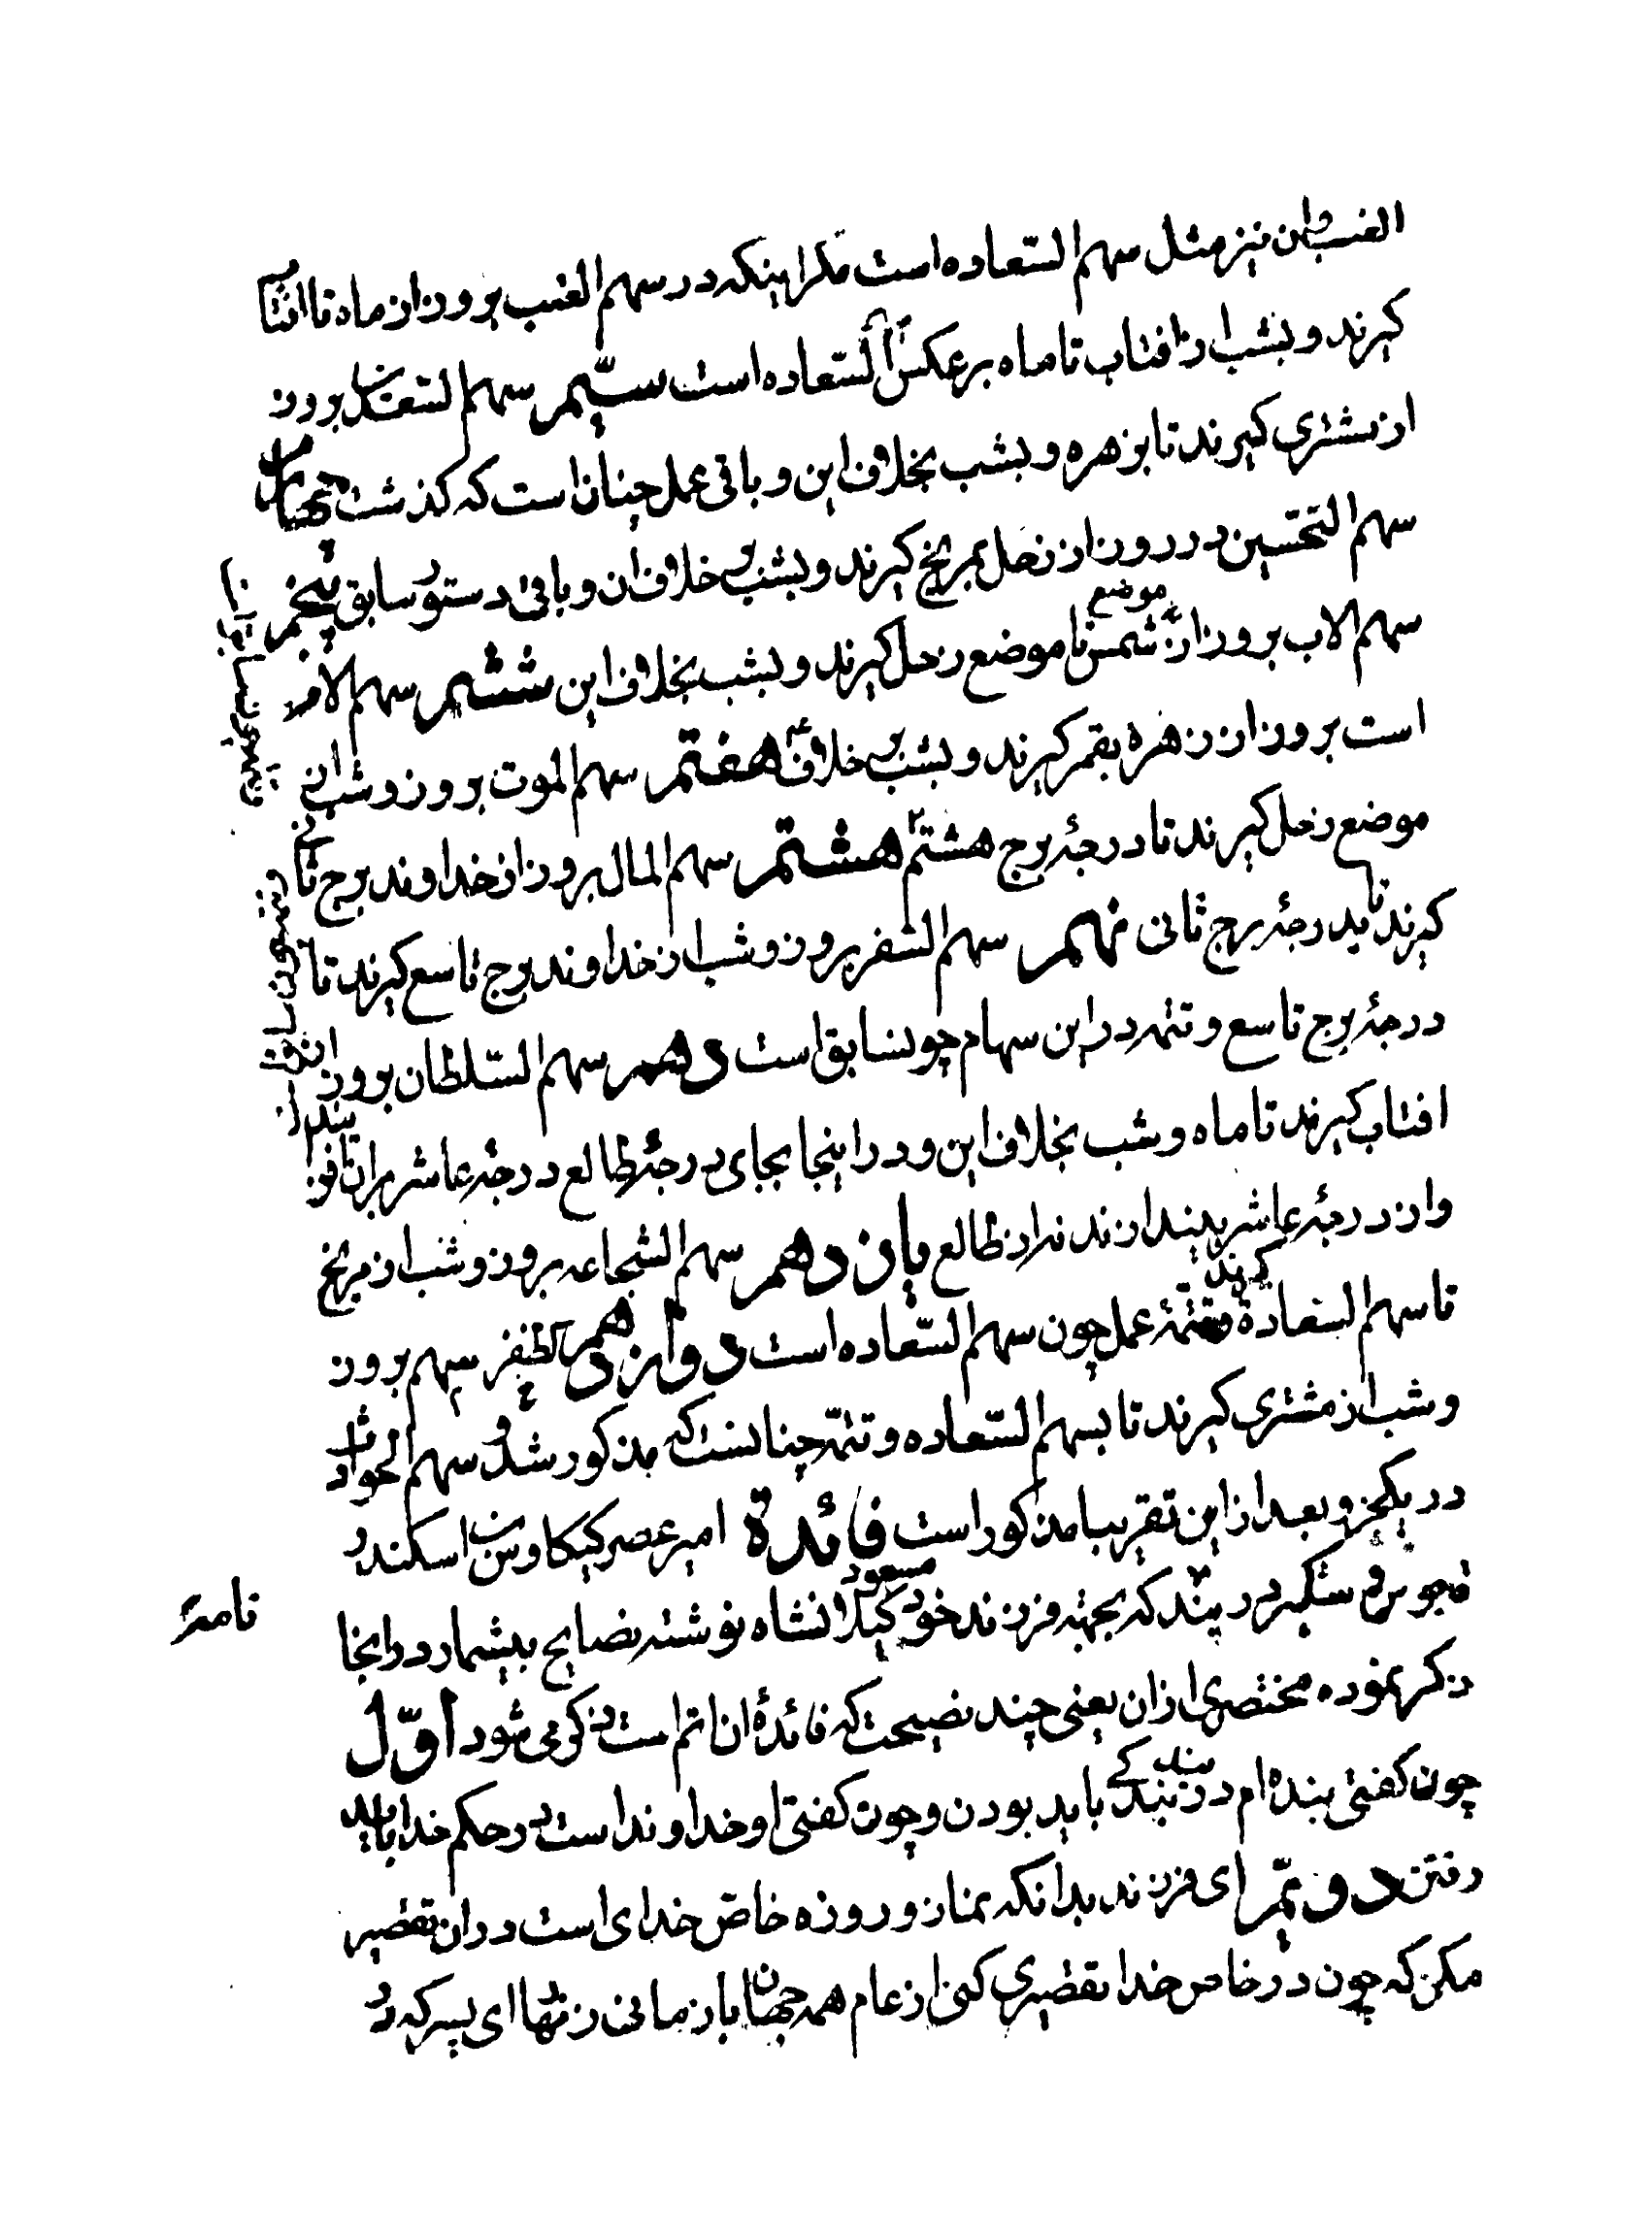 الغیب و این نیز مثل سهم السّعاده است مکر اینکه در سهم الغیب بروز از ماه تا افتاب
کیرند و بشب از افتاب تا ماه بر عکس السّعاده است سیّم سهم السّعدین بروز
از مشتری کیرند تا بزهره و بشب بخلاف این و باقی عمل چنان است که کذشت چهارم
سهم النحسین در روز از زحل بمریخ کیرند و بشب بر خلاف ان و باقی دستور سابق پنجم
سهم الاب بروز از موضع شمس تا موضع زحل کیرند و بشب بخلاف این ششم سهم الام
است بروز از زهره بقمر کیرند و بشب بر خلاف هفتم سهم الموت بروز و شب از
موضع زحل کیرند تا درجهٔ برج هشتم هشتم سهم المال بروز از خداوند برج ثانی
کیرند تا بدرجهٔ برج ثانی نهم سهم السّفر بروز و شب از خداوند برج تاسع کیرند تا
درجهٔ برج تاسع و تتمه در این سهام چو سابق است دهم سهم السّلطان بروز از
افتاب کیرند تا ماه و شب بخلاف این و در اینجا بجای درجهٔ طالع درجهٔ عاشر بران افزایند
و از درجهٔ عاشر بیندازند نه از طالع یازدهم سهم الشجاعه بروز و شب از مریخ
تا سهم السّعادة کیرند تتمّهٔ عمل چون سهم السّعاده است دوازدهم سهم الظفر بروز
و شب از مشتری کیرند تا بسهم السّعاده و تتمّه چنانست که مذکور شد و سهم الحوادث
در یکجزو بعد از این تقریبا مذکور است فائدة امیر عصر کیکاوس بن اسکندر
قابوس وشمکیر در پند که بجهته فرزند خود کیلانشاه نوشته نصایح بیشمار در انجا
نامهٔ
ذکر نموده مختصری از ان یعنی چند نصیحت که فائدهٔ ان اتم است ذکر می شود اوّل
چون کفتی بنده ام در بند بندکی باید بودن و چون کفتی او خداوند است در حکم خدا باید
رفتن دویّم ای فرزند بدانکه نماز و روزه خاص خدای است در ان تقصیر
مکن که چون در خاص خدا تقصیری کنی از عام همه جهان باز مانی زنهار ای پسر که در